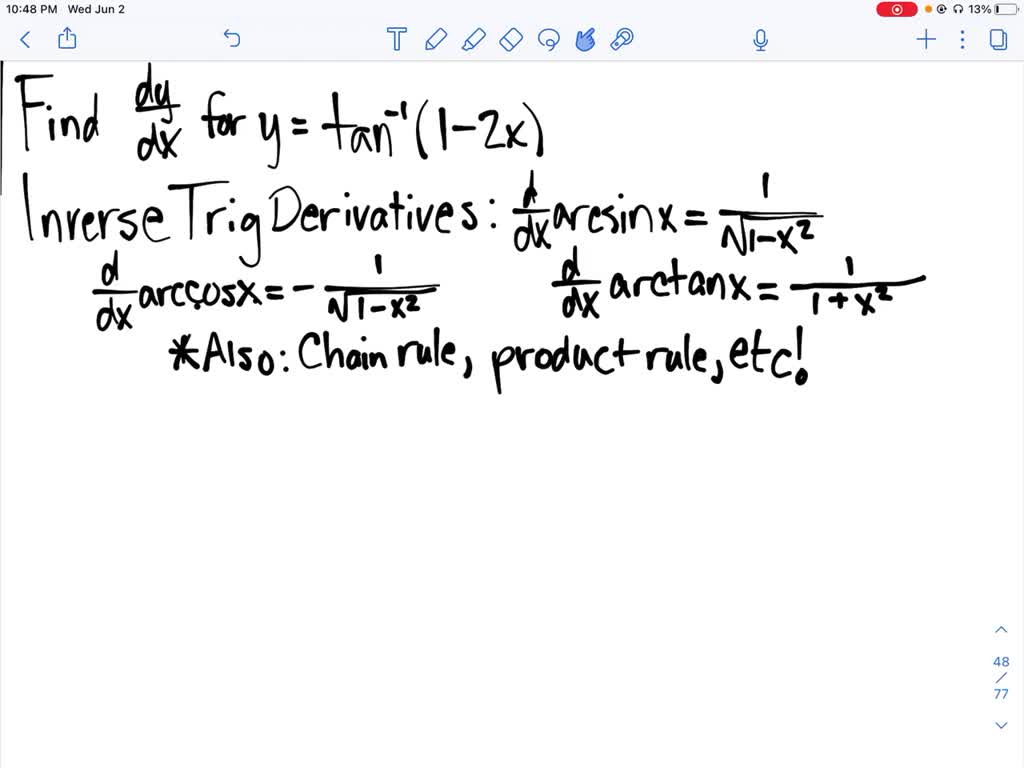 10:48 PM Wed Jun 2 13%
Find dy/dx for y = tan⁻¹(1-2x)
Inverse Trig Derivatives: d/dx arcsin x = 1/√(1-x²)
d/dx arccos x = - 1/√(1-x²) d/dx arctan x = 1/(1+x²)
*Also: Chain rule, product rule, etc!
48
/
77